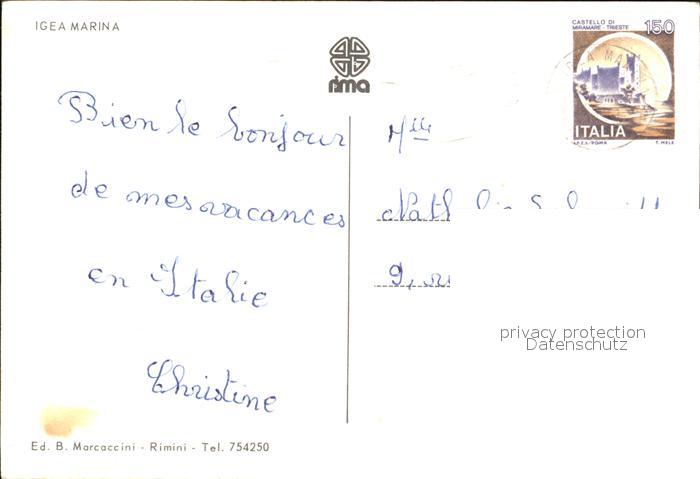 IGEA MARINA
rima
CASTELLO DI
MIRAMARE - TRIESTE
150
ITALIA
I.P.Z.S. - ROMA
T. MELE
Bien le bonjour
de mes vacances
en Italie
Christine
Mlle
9, 
privacy protection
Datenschutz
Ed. B. Marcaccini - Rimini - Tel. 754250